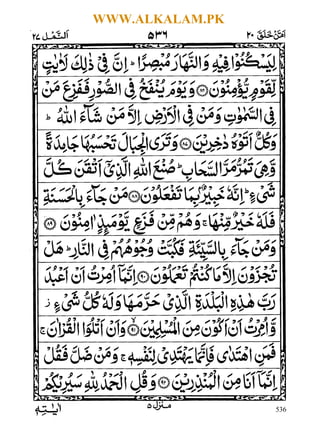 WWW.ALKALAM.PK
اَمَّنْ خَلَقَ ٢٠
٥٣٦
اَلنَّمْل ٢٧
لِيَسْكُنُوْا فِيْهِ وَالنَّهَارَ مُبْصِرًا ؕ اِنَّ فِيْ ذٰلِكَ لَاٰيٰتٍ
لِّقَوْمٍ يُّؤْمِنُوْنَ ۝٨٦ وَيَوْمَ يُنْفَخُ فِي الصُّوْرِ فَفَزِعَ مَنْ
فِي السَّمٰوٰتِ وَمَنْ فِي الْاَرْضِ اِلَّا مَنْ شَآءَ اللّٰهُ ؕ
وَكُلٌّ اَتَوْهُ دٰخِرِيْنَ ۝٨٧ وَتَرَى الْجِبَالَ تَحْسَبُهَا جَامِدَةً
وَّهِيَ تَمُرُّ مَرَّ السَّحَابِ ؕ صُنْعَ اللّٰهِ الَّذِيْٓ اَتْقَنَ كُلَّ
شَيْءٍ ؕ اِنَّهٗ خَبِيْرٌۢ بِمَا تَفْعَلُوْنَ ۝٨٨ مَنْ جَآءَ بِالْحَسَنَةِ
فَلَهٗ خَيْرٌ مِّنْهَا ۚ وَهُمْ مِّنْ فَزَعٍ يَّوْمَئِذٍ اٰمِنُوْنَ ۝٨٩
وَمَنْ جَآءَ بِالسَّيِّئَةِ فَكُبَّتْ وُجُوْهُهُمْ فِي النَّارِ ؕ هَلْ
تُجْزَوْنَ اِلَّا مَا كُنْتُمْ تَعْمَلُوْنَ ۝٩٠ اِنَّمَآ اُمِرْتُ اَنْ اَعْبُدَ
رَبَّ هٰذِهِ الْبَلْدَةِ الَّذِيْ حَرَّمَهَا وَلَهٗ كُلُّ شَيْءٍ ز
وَّاُمِرْتُ اَنْ اَكُوْنَ مِنَ الْمُسْلِمِيْنَ ۝٩١ وَاَنْ اَتْلُوَا الْقُرْاٰنَ ۚ
فَمَنِ اهْتَدٰى فَاِنَّمَا يَهْتَدِيْ لِنَفْسِهٖ ۚ وَمَنْ ضَلَّ فَقُلْ
اِنَّمَآ اَنَا مِنَ الْمُنْذِرِيْنَ ۝٩٢ وَقُلِ الْحَمْدُ لِلّٰهِ سَيُرِيْكُمْ
منزل ٥
اٰيٰتِهٖ
536